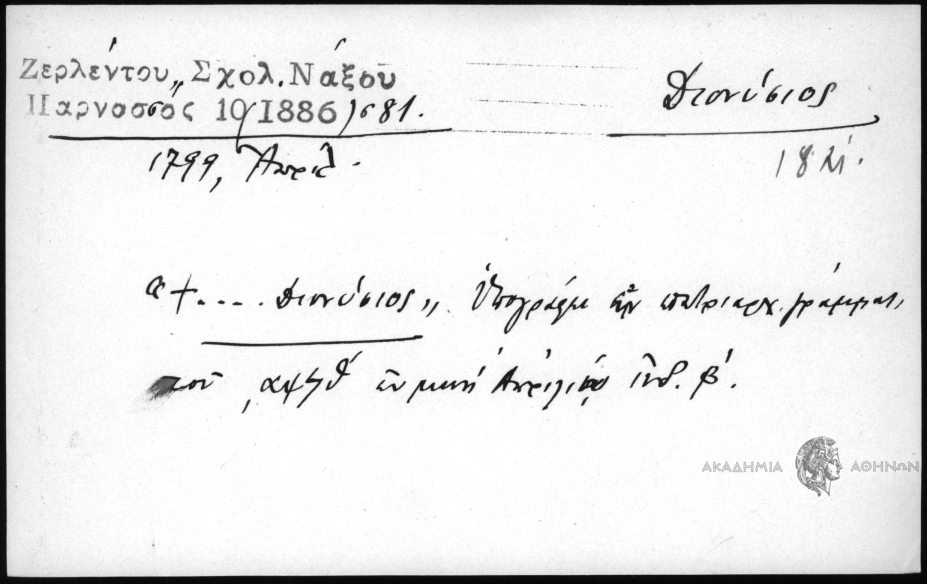 Ζερλέντου,, Σχολ. Νάξου
Παρνασσός 10/1886/681.
Διονύσιος
1799, Ἀπριλ.
1821.
"+.... Διονύσιος,, Ὑπογράφει πατριαρχ. γράμματ.
τοῦ ͵αψϟθ ἐν μηνὶ Ἀπριλίῳ ἰνδ. β΄.
ΑΚΑΔΗΜΙΑ ΑΘΗΝΩΝ